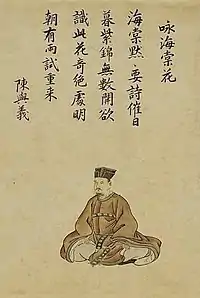 咏海棠花
海棠黙黙要詩催日
暮紫錦無數開欲
識此花奇絶處明
朝有雨試重来
陳與義